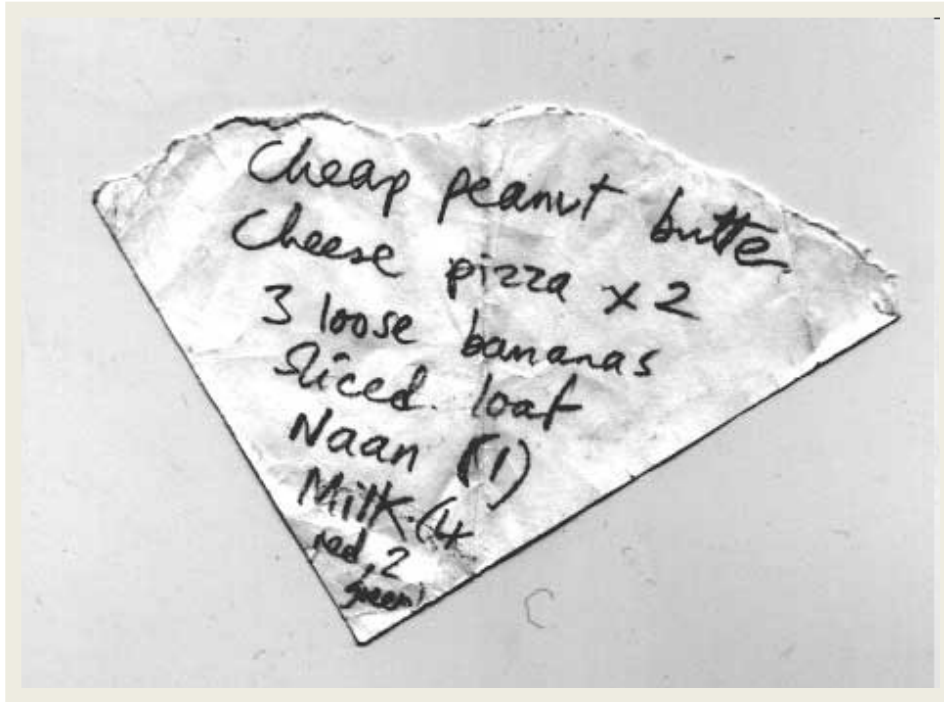 Cheap peanut butte
Cheese pizza x 2
3 loose bananas
Sliced. loaf
Naan (1)
Milk. (4
red, 2
green)